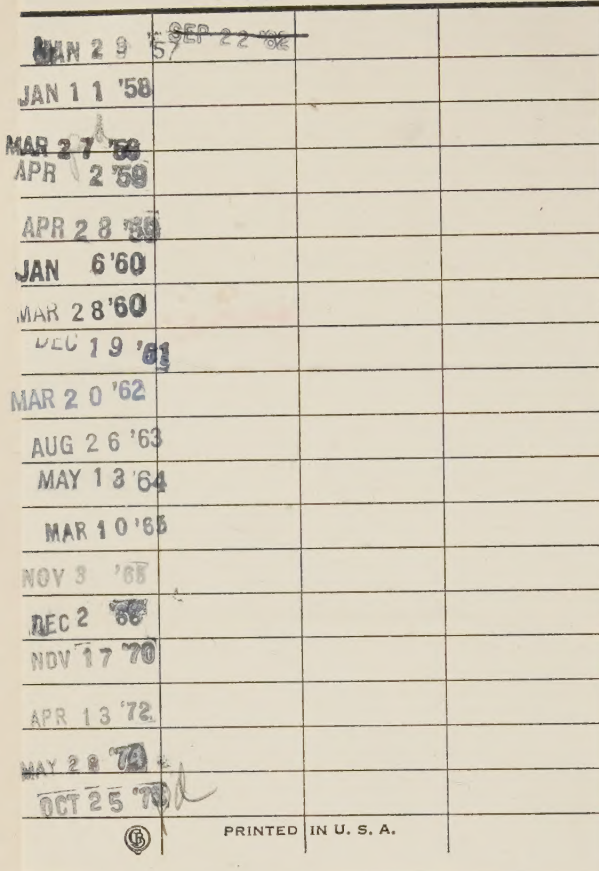 JAN 29 '57 SEP 22 '82
JAN 11 '58
MAR 27 '59
APR 2 '59
APR 28 '59
JAN 6 '60
MAR 28 '60
DEC 19 '61
MAR 20 '62
AUG 26 '63
MAY 13 '64
MAR 10 '65
NOV 3
DEC 2 '66
NOV 17 '70
APR 13 '72
MAY 28 '74
OCT 25
PRINTED IN U. S. A.